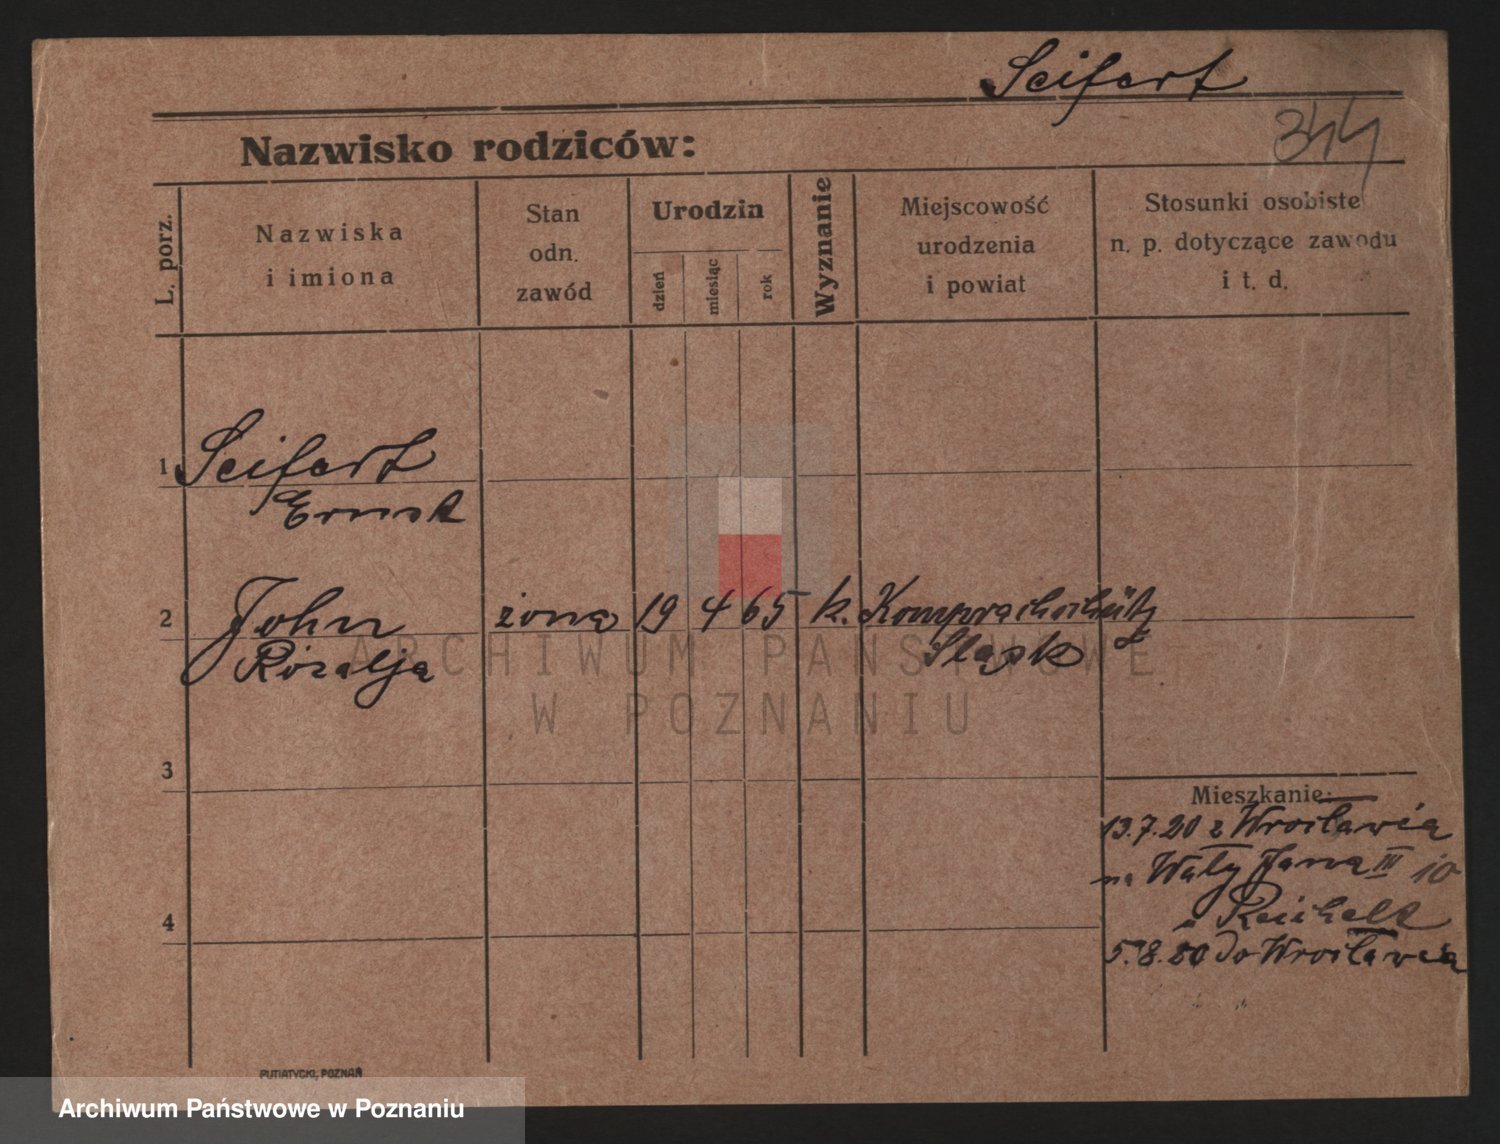 Seifert
344
Nazwisko rodziców:
L. porz.
Nazwiska
i imiona
Stan
odn.
zawód
Urodzin
dzień
miesiąc
rok
Wyznanie
Miejscowość
urodzenia
i powiat
Stosunki osobiste
n. p. dotyczące zawodu
i t. d.
1 Seifert
Ernst
2 John żona 19 4 65 k. Komprachschütz
Rozalja Śląsk
3
Mieszkanie:
13.7.20 z Wrocławia
na Wały Jana III 10
Reichelt
4
5.8.20 do Wrocławia
PUTIATYCKI, POZNAŃ
ARCHIWUM PAŃSTWOWE
W POZNANIU
Archiwum Państwowe w Poznaniu